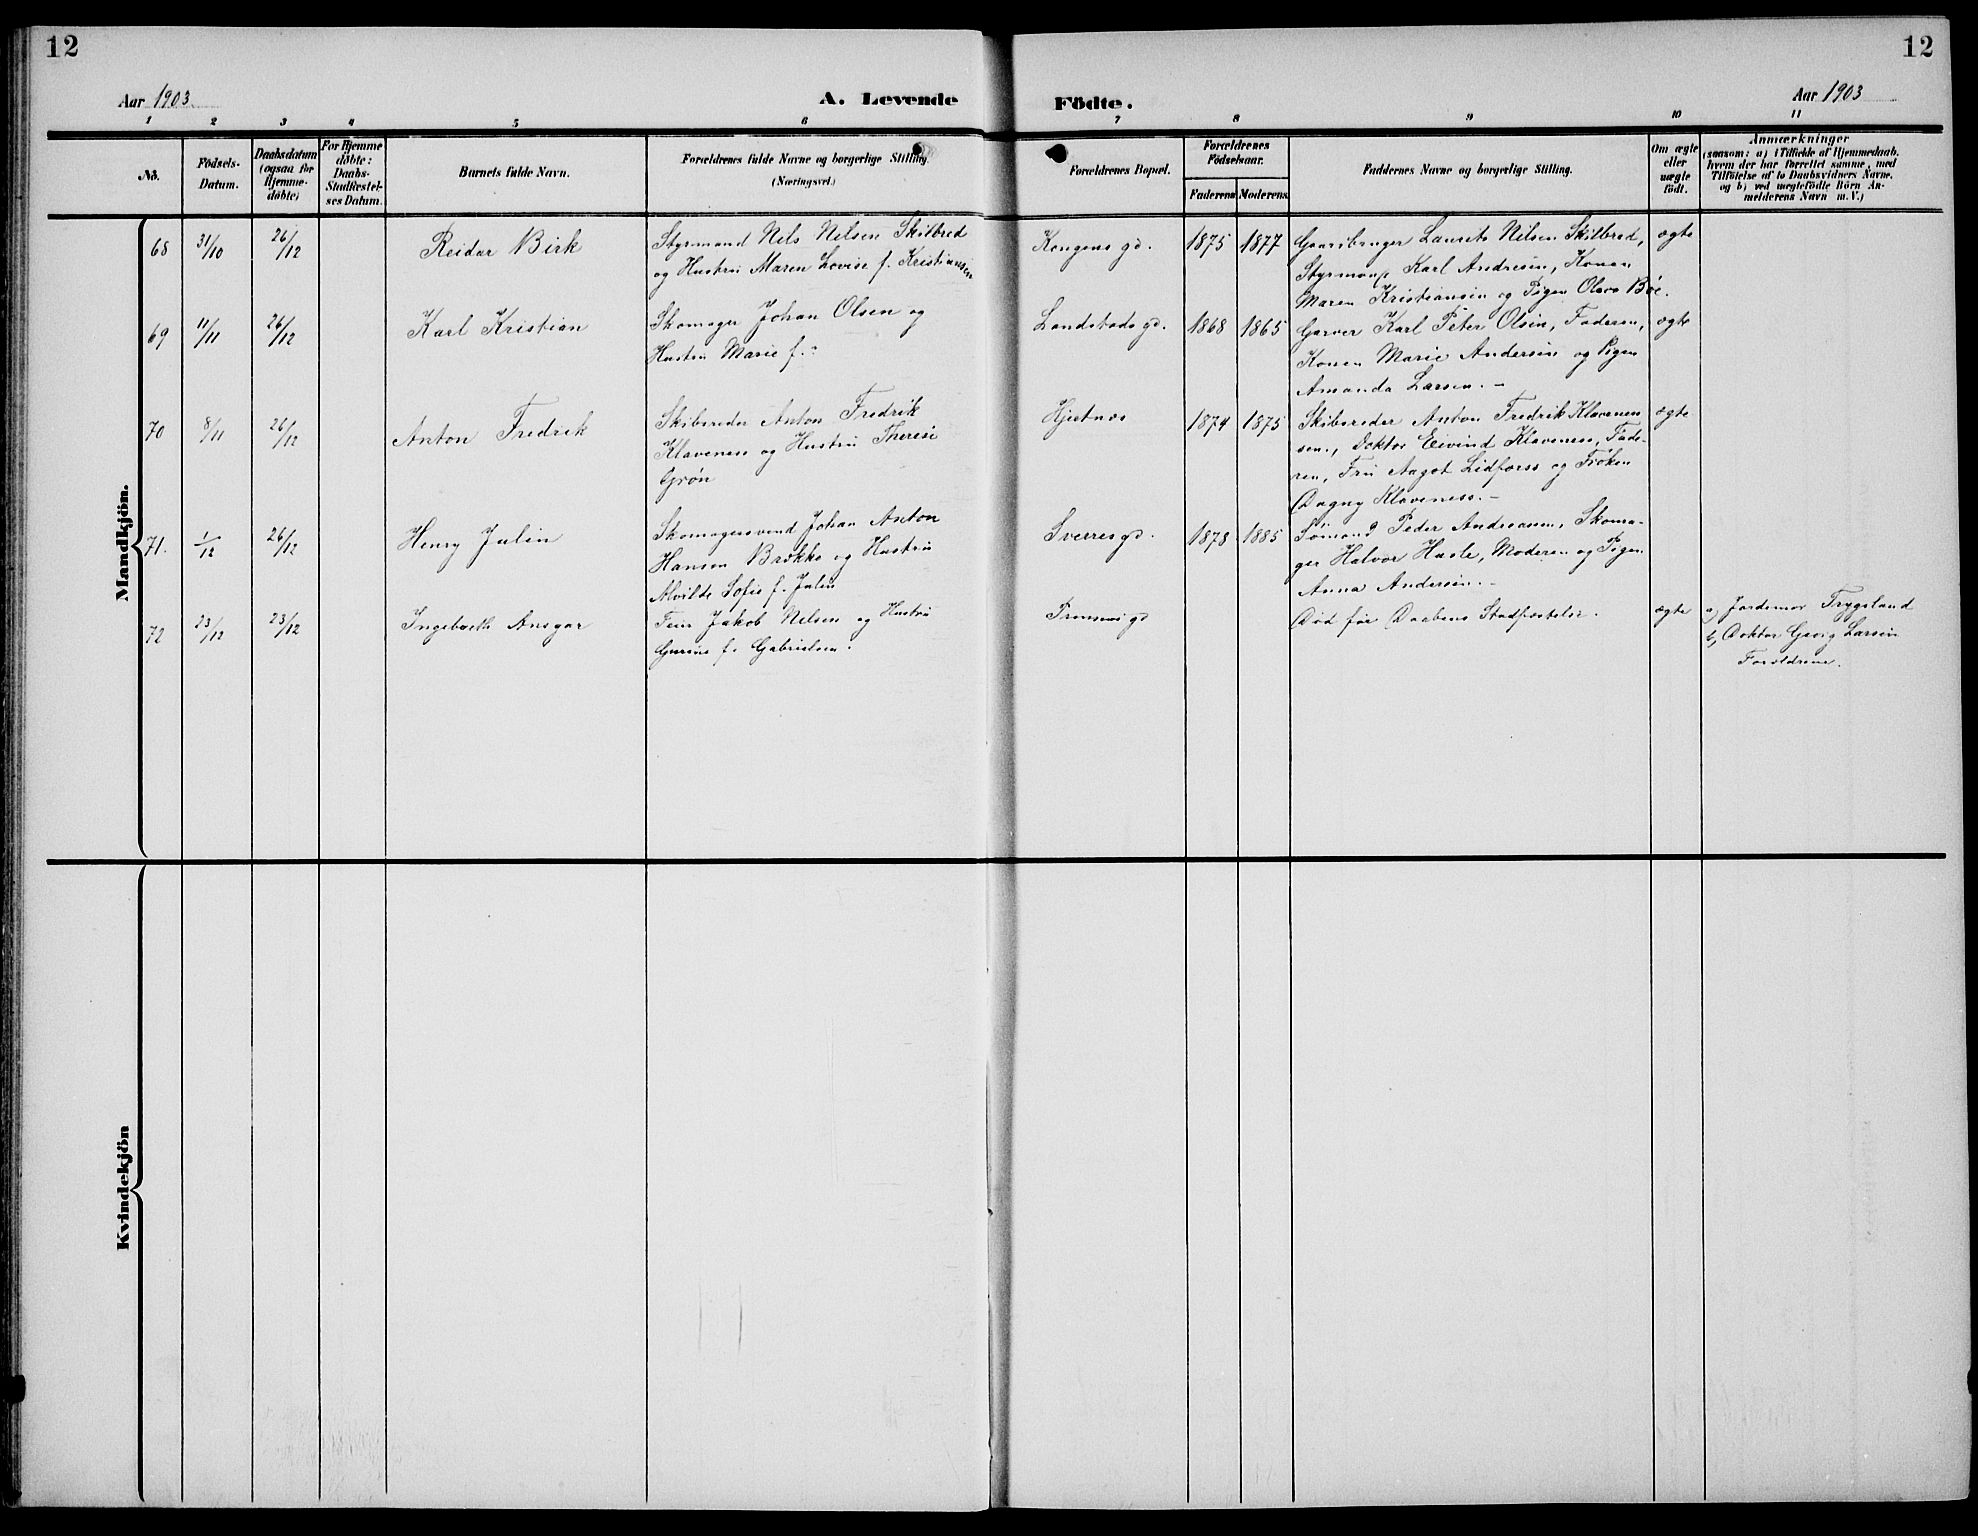 12
12
Aar 1903
A. Levende
Födte.
Aar 1903
1 2 3 4 5 6 7 8 9 10 11
No.
Födsels-
Datum.
Daabsdatum
(ogsaa for
Hjemme-
døbte)
For Hjemme
døbte:
Daabs-
Stadfæstel-
ses Datum.
Barnets fulde Navn.
Forældrenes fulde Navne og borgerlige Stilling.
(Næringsvei.)
Forældrenes Bopæl.
Forældrenes
Födselsaar.
Faderens Moderens
Faddernes Navne og borgerlige Stilling.
Om ægte
eller
uægte
födt.
Anmærkninger
(saasom: a) i Tilfælde af Hjemmedaab,
hvem der har forrettet samme, med
Tilföielse af to Daabsvidners Navne,
og b) ved uægtefødte Börn An-
melderens Navn m. V.)
Mandkjön.
68 31/10 26/12 Reidar Birk
Styrmand Nils Nilsen Skilbred
og Hustru Maren Lovise f. Kristiansen
Kongens gd. 1875 1877
Gaardbruger Laurits Nilsen Skilbred,
Styrmand Karl Andresen, Konen
Maren Kristiansen og Pigen Olava Bøe.
ægte
69 11/11 26/12 Karl Kristian
Skomager Johan Olsen og
Hustru Marie f. ?
Landstads gd. 1868 1865
Garver Karl Peter Olsen, Faderen,
Konen Marie Andersen og Pigen
Amanda Larsen. –
ægte
70 8/11 26/12 Anton Fredrik
Skibsreder Anton Fredrik
Klaveness og Hustru Therese
Grøn
Hjertnes 1874 1875
Skibsreder Anton Fredrik Klavenes-
sen., Doktor Eivind Klaveness, Fade-
ren, Fru Aagot Lidforss og Frøken
Dagny Klaveness. –
ægte
71. 1/12 26/12 Henry Julin
Skomagersvend Johan Anton
Hansen Brokke og Hustru
Alvilde Sofie f. Julin
Sverresgd. 1878 1885
Sømand Peder Andreasen, Skoma-
ger Halvor Hasle, Moderen og Pigen
Anna Andersen. –
72 23/12 23/12 Ingebreth Ansgar
Feier Jakob Nilsen og Hustru
Gurine f. Gabrielsen.
gd
Død før Daabens Stadfæstelse.
ægte
a, Jordemor Trygsland
b, Doktor Georg Larsen
Forældrene.
Kvindekjön